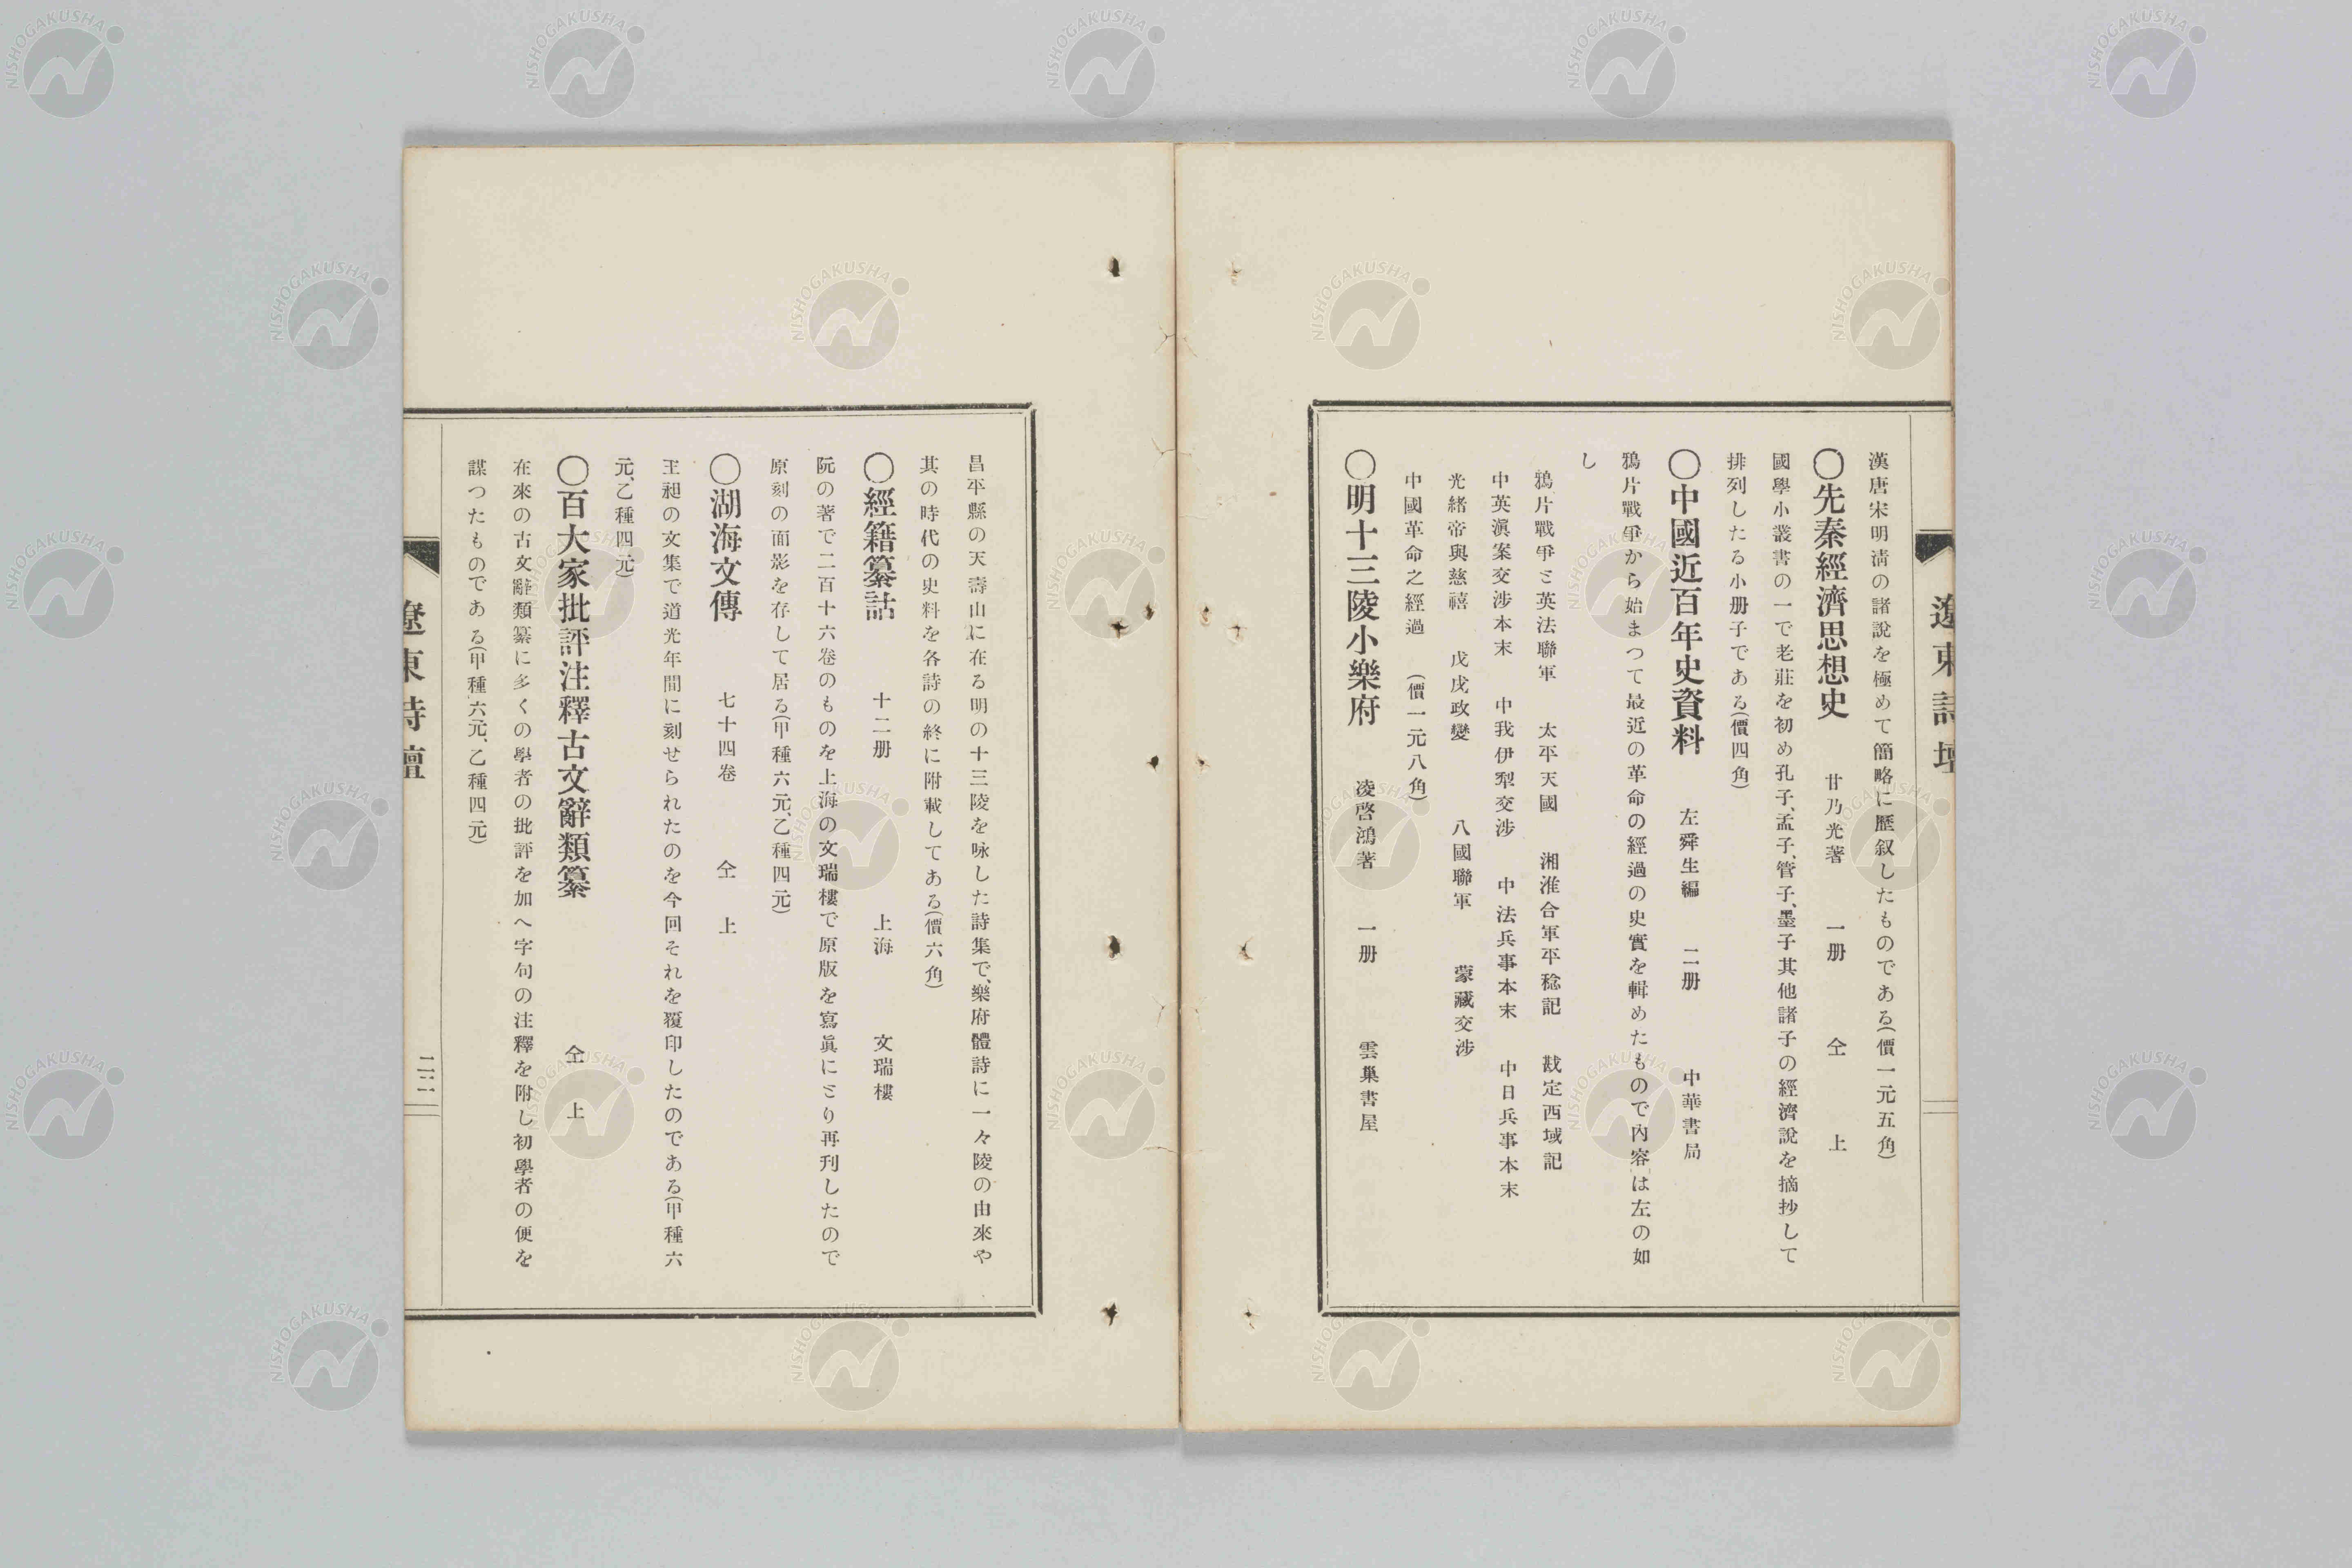 遼東詩壇
漢唐宋明淸の諸說を極めて簡略に歷叙したものである(價一元五角)
〇先秦經濟思想史　甘乃光著　一册　仝上
國學小叢書の一で老莊を初め孔子、孟子、管子、墨子其他諸子の經濟說を摘抄して
排列したる小册子である(價四角)
〇中國近百年史資料　左舜生編　二册　中華書局
鴉片戰爭から始まつて最近の革命の經過の史實を輯めたもので內容は左の如
し
鴉片戰爭と英法聯軍　太平天國　湘淮合軍平稔記　戡定西域記
中英滇案交涉本末　中我伊犁交涉　中法兵事本末　中日兵事本末
光緖帝與慈禧　戊戌政變　八國聯軍　蒙藏交涉
中國革命之經過　(價一元八角)
〇明十三陵小樂府　凌啓鴻著　一册　雲巢書屋
昌平縣の天壽山に在る明の十三陵を咏した詩集で、樂府體詩に一々陵の由來や
其の時代の史料を各詩の終に附載してある(價六角)
〇經籍纂詁　十二册　上海　文瑞樓
阮の著で二百十六卷のものを上海の文瑞樓で原版を寫眞にとり再刊したので
原刻の面影を存して居る(甲種六元、乙種四元)
〇湖海文傳　七十四卷　仝上
王昶の文集で道光年間に刻せられたのを今回それを覆印したのである(甲種六
元、乙種四元)
〇百大家批評注釋古文辭類纂　仝上
在來の古文辭類纂に多くの學者の批評を加へ字句の注釋を附し初學者の便を
謀つたものである(甲種六元、乙種四元)
遼東詩壇
NISHOGAKUSHA